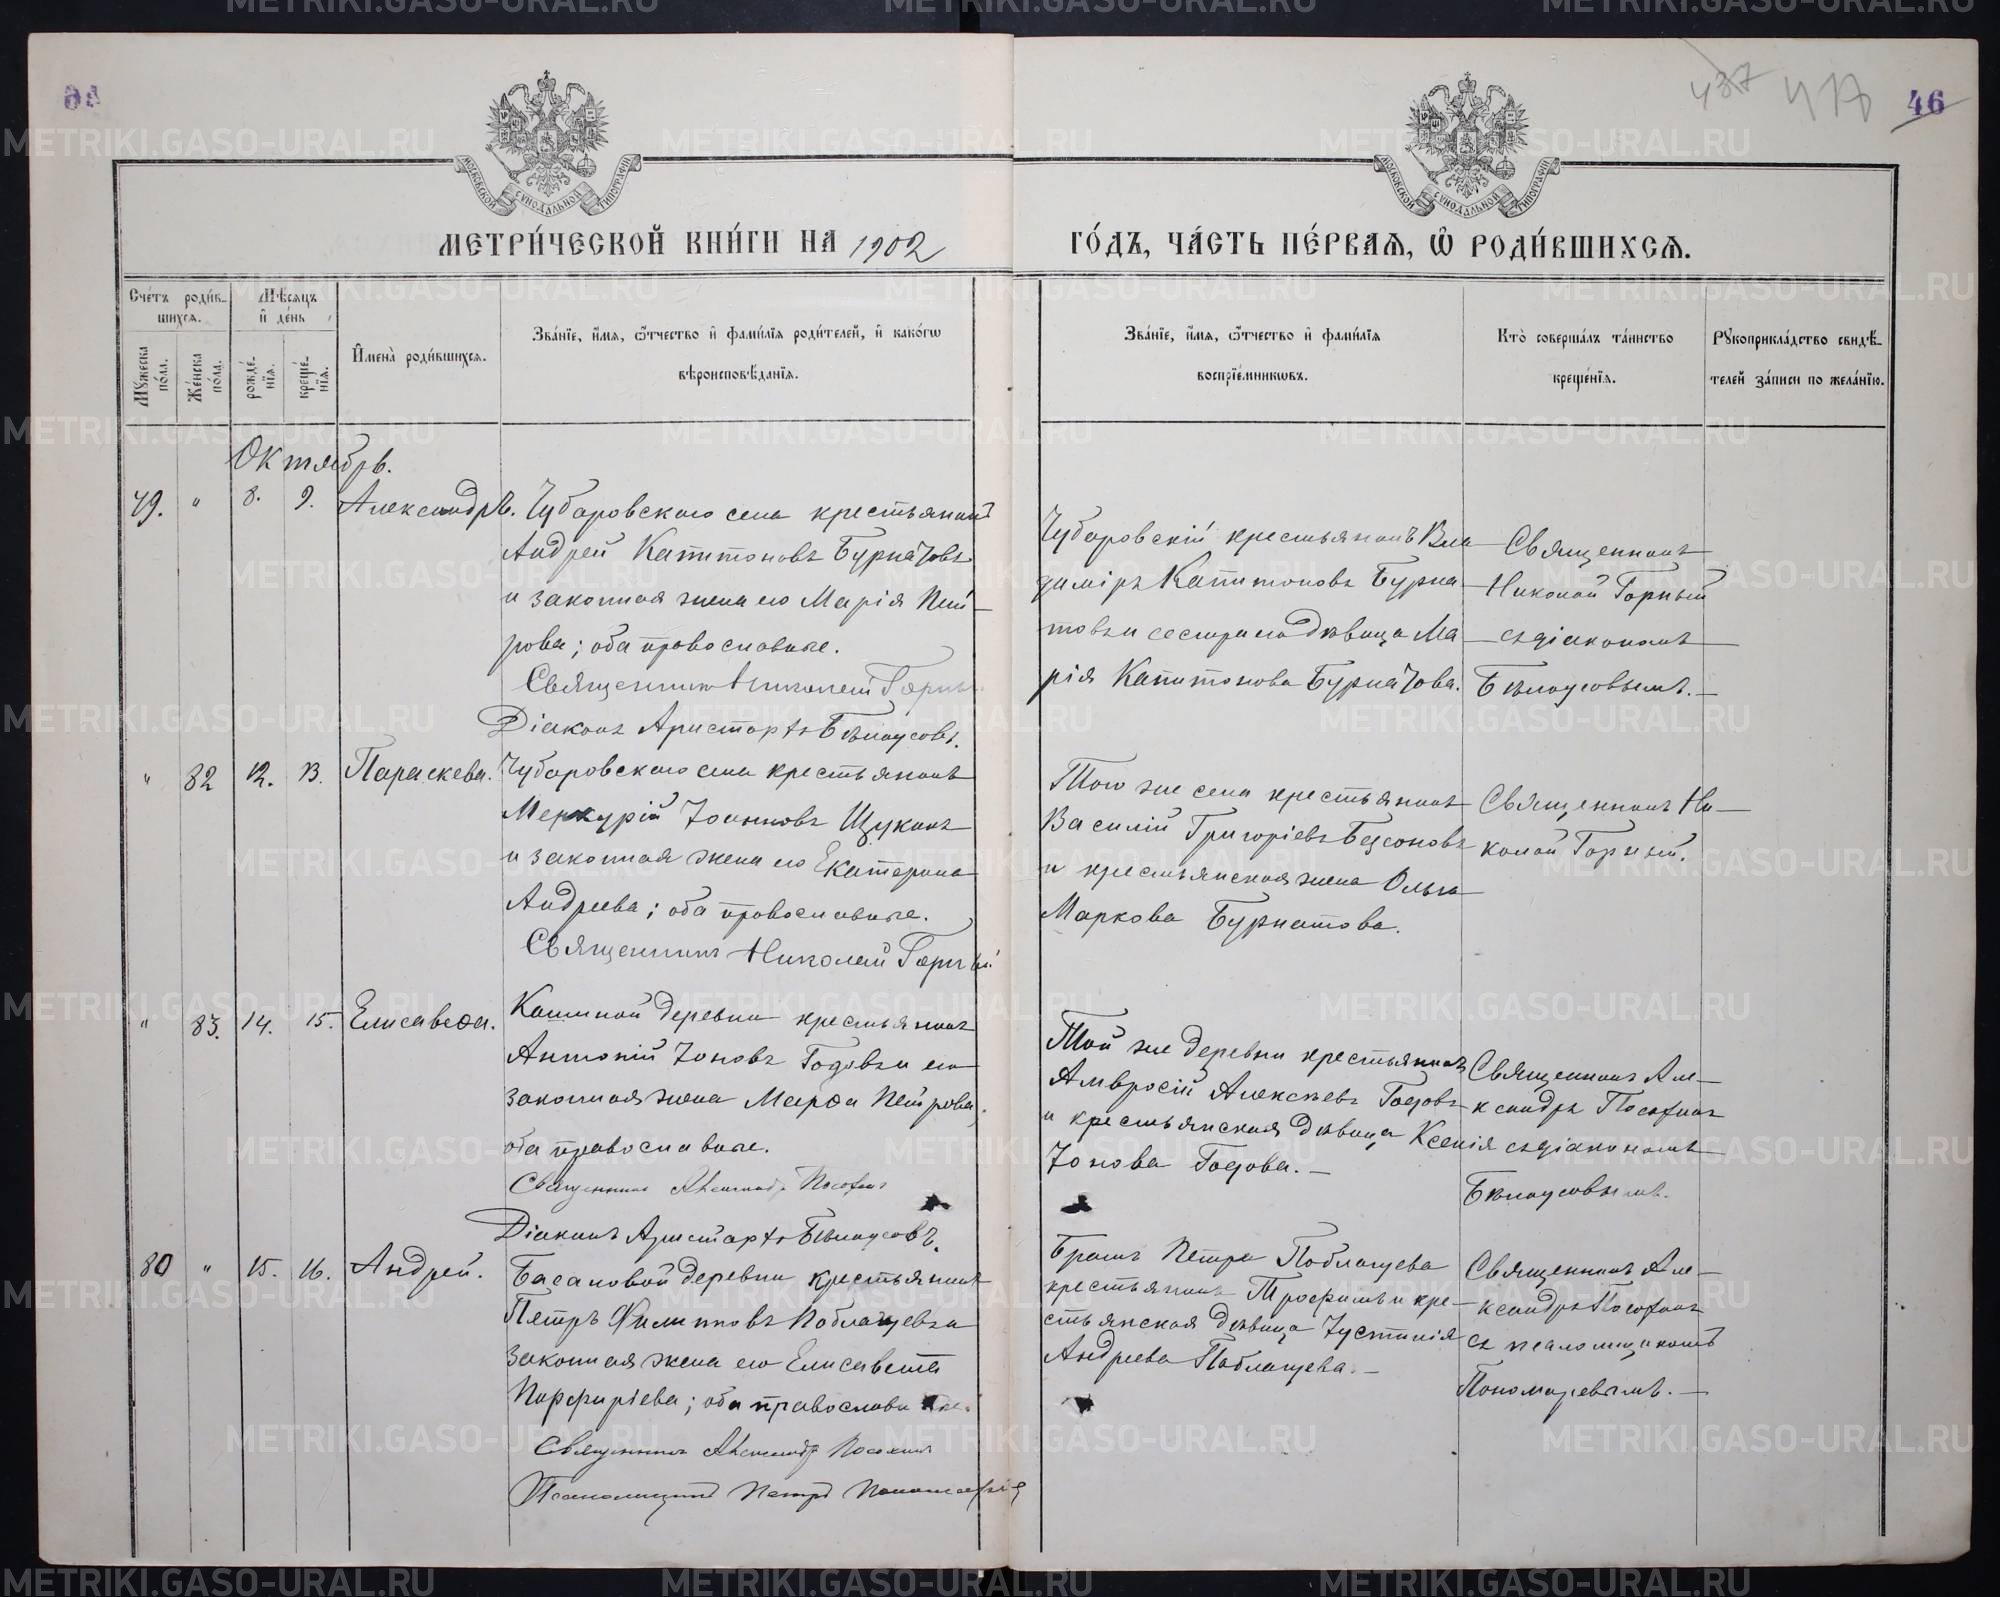 46
437
417
МОСКОВСКОЙ СУНОДАЛЬНОЙ ТИПОГРАФІИ
МОСКОВСКОЙ СУНОДАЛЬНОЙ ТИПОГРАФІИ
МЕТРИ́ЧЕСКОЙ КНИ́ГИ НА 1902
ГО́ДЪ, ЧА́СТЬ ПЕ́РВАѦ, Ѽ РОДИ́ВШИХСѦ.
Сче́тъ роди́вшихсѧ.
Мѣ́сѧцъ и҆ де́нь
Мꙋ́жеска по́ла.
Же́нска по́ла.
рожде́нїѧ.
креще́нїѧ.
И҆мена̀ роди́вшихсѧ.
Зва́нїе, и҆́мѧ, ѻ҆́тчество и҆ фами́лїѧ роди́телей, и҆ како́гѡ
вѣроисповѣ́данїѧ.
Зва́нїе, и҆́мѧ, ѻ҆́тчество и҆ фами́лїѧ
воспрїе́мникѡвъ.
Кто̀ соверша́лъ та́инство
креще́нїѧ.
Рꙋкоприкла́дство свидѣ́-
телей за́писи по жела́нїю.
Октябрь.
79. " 8. 9. Александръ.
Чубаровскаго села крестьянинъ
Андрей Капитоновъ Бурнатовъ
и законная жена его Марія Пет-
рова; оба православные.
Священникъ Николай Горный
Діаконъ Аристархъ Бѣлоусовъ.
Чубаровскій крестьянинъ Вла-
димірь Капитоновъ Бурна-
товъ и сестра его дѣвица Ма-
рія Капитонова Бурнатова.
Священникъ
Николай Горный
съ діакономъ
Бѣлоусовымъ.
" 82 12. 13. Параскева.
Чубаровскаго села крестьянинъ
Меркурій Іоанновъ Щукинъ
и законная жена его Екатерина
Андреева; оба православные.
Священникъ Николай Горный
Того же села крестьянинъ
Василій Григоріевъ Бесоновъ
и крестьянская жена Ольга
Маркова Бурнатова.
Священникъ Ни-
колай Горный.
" 83. 14. 15. Елисавеѳа.
деревни крестьянинъ
Антоній Іоновъ Годовъ и его
законная жена Марѳа Петрова;
оба православные.
Священникъ Александръ Посохинъ
Діаконъ Аристархъ Бѣлоусовъ.
Той же деревни крестьянинъ
Амвросій Алексѣевъ Годовъ
и крестьянская дѣвица Ксенія
Іонова Годова.
Священникъ Але-
ксандръ Посохинъ
съ діакономъ
Бѣлоусовымъ.
80 " 15. 16. Андрей.
Басановой деревни крестьянинъ
Петръ Филипповъ и
законная жена его Елисавета
Порфиріева; оба православные.
Священникъ Александръ Посохинъ
Псаломщикъ Петръ Пономаревъ
Братъ Петра
крестьянинъ Трофимъ и кре-
стьянская дѣвица Іустинія
Андреева
Священникъ Але-
ксандръ Посохинъ
съ псаломщикомъ
Пономаревымъ.
METRIKI.GASO-URAL.RU